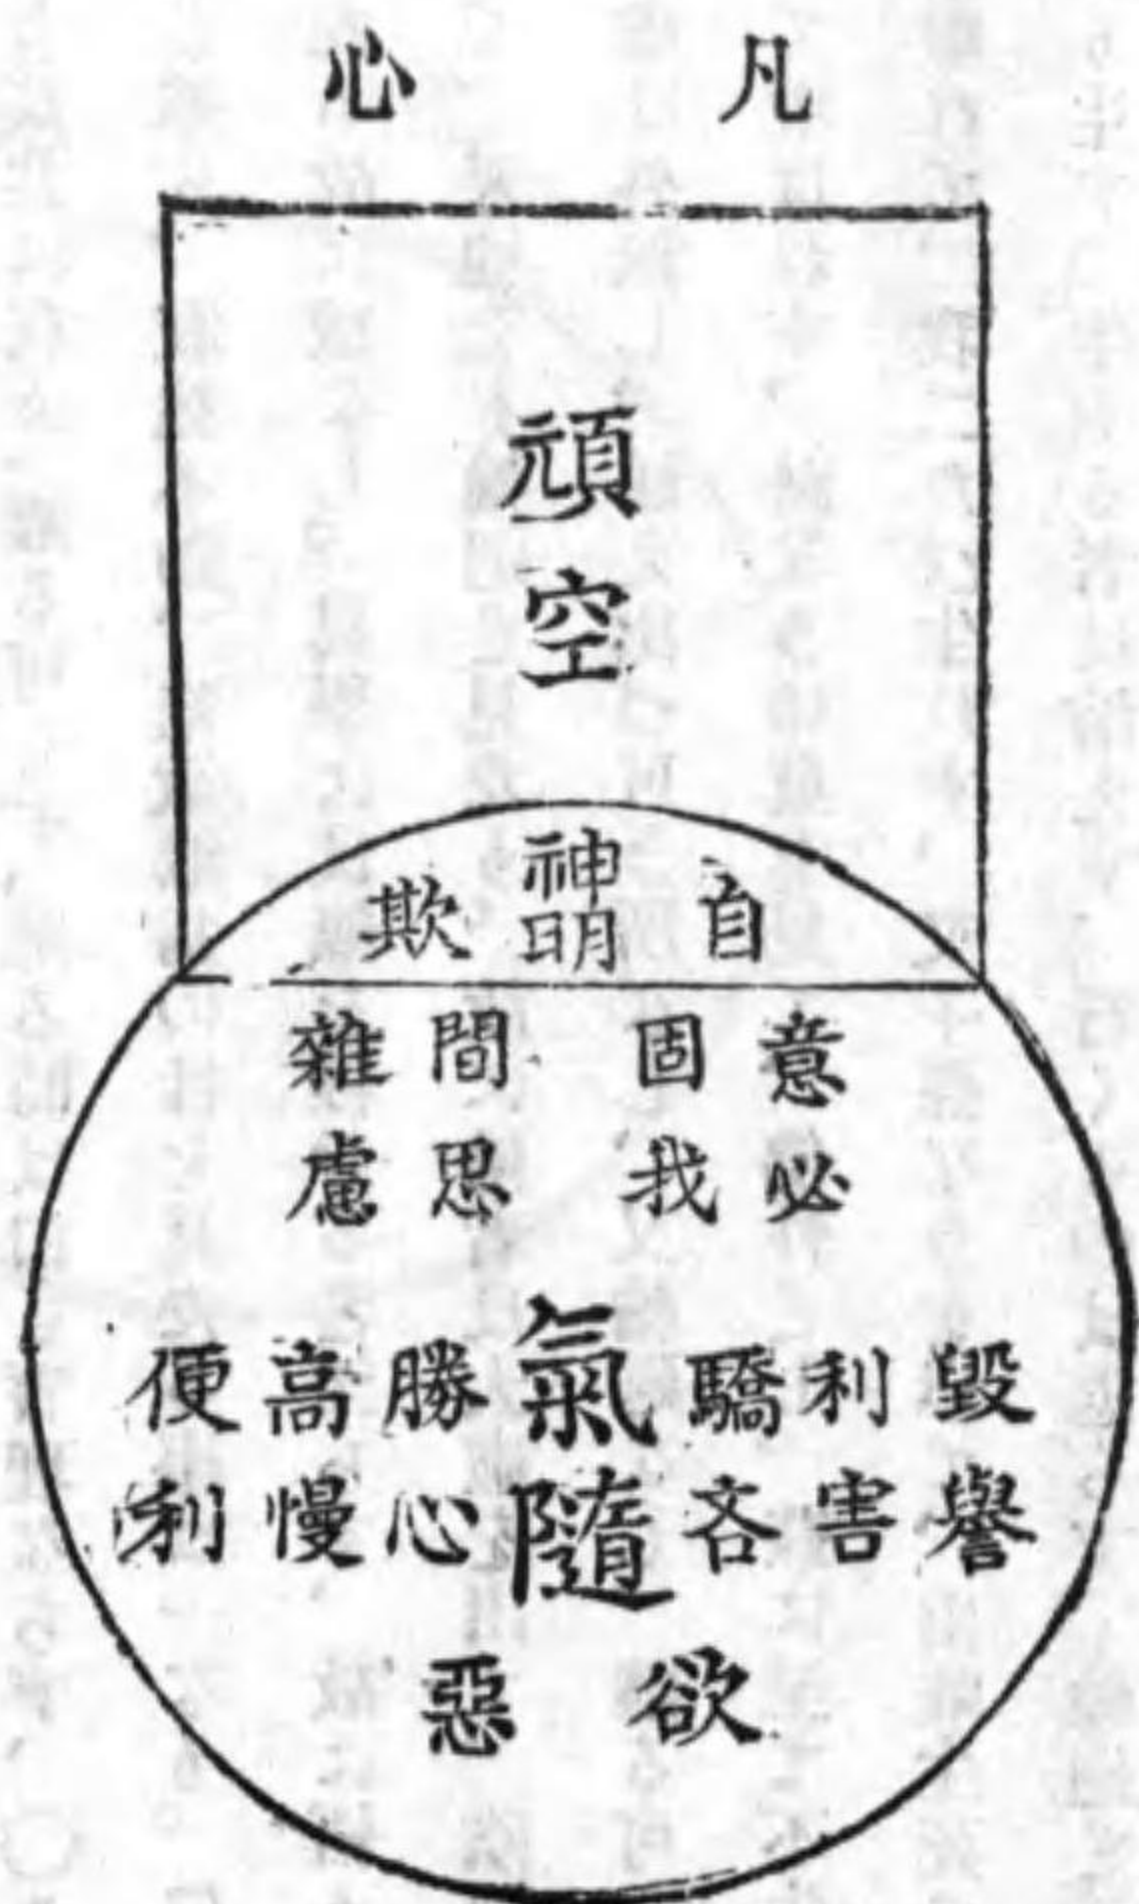 凡心
頑空
自神明欺
意必
固我
間思
雜慮
毀譽
利害
驕吝
氣隨
勝心
高慢
便利
欲惡